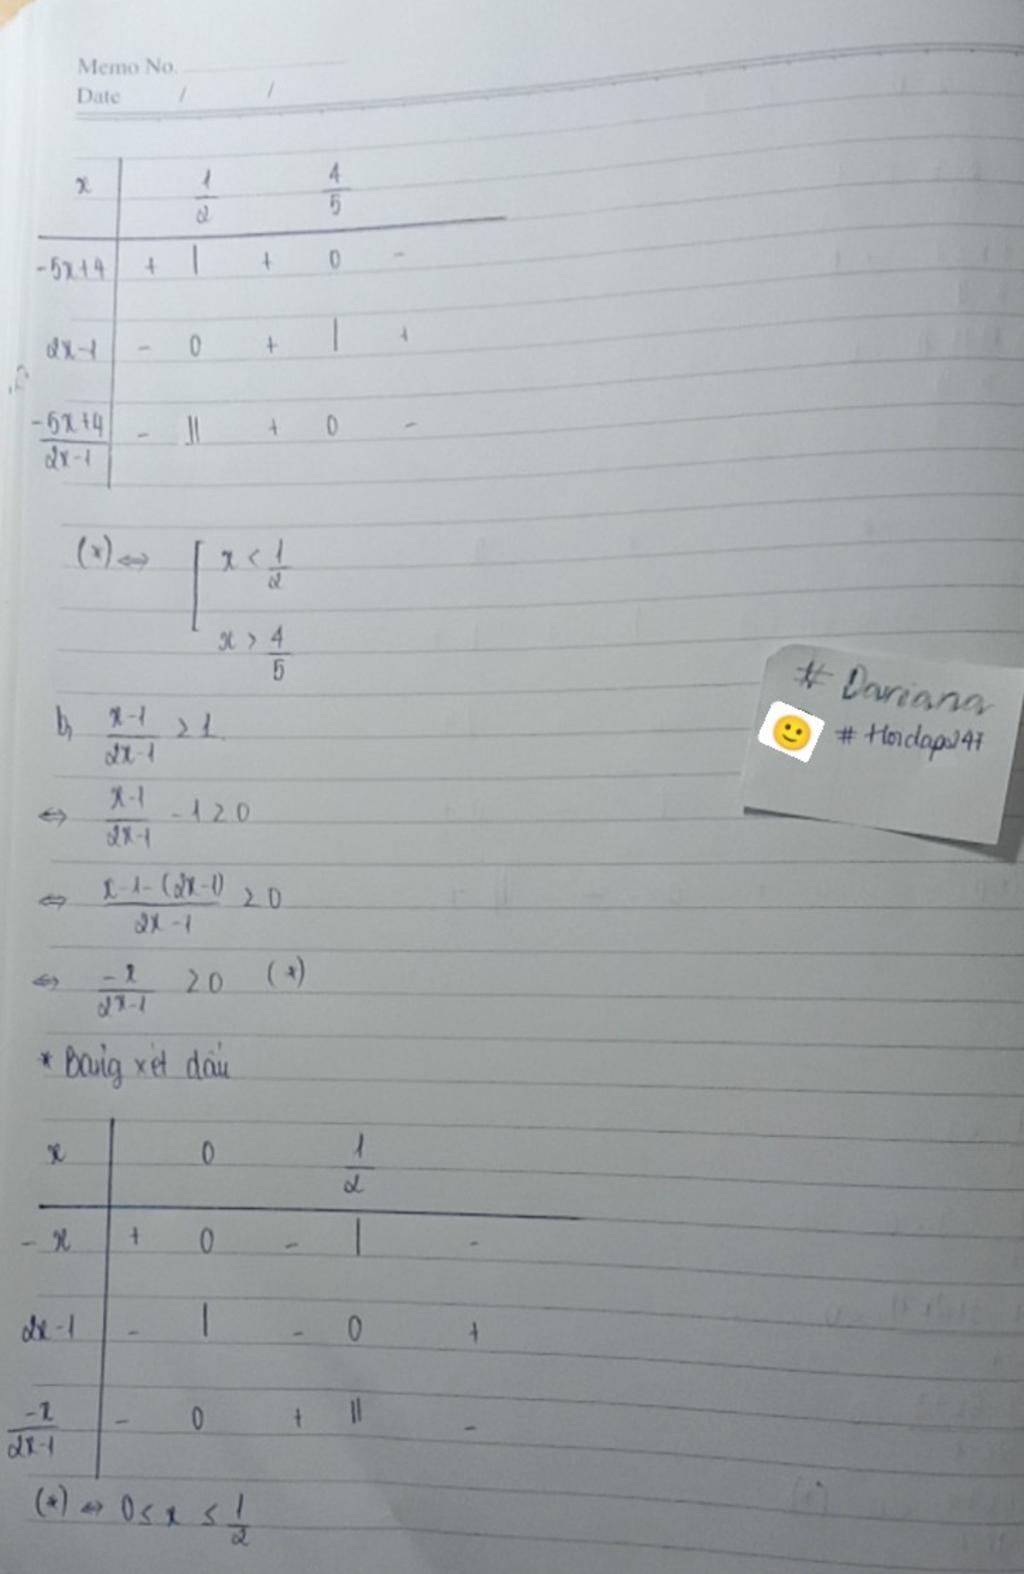 Memo No.
Date / /
x 1/2 4/5
-5x+4 + | + 0 -
2x-1 - 0 + | +
(-5x+4)/(2x-1) - || + 0 -
(*) ⇔ [ x < 1/2
x > 4/5
b, (x-1)/(2x-1) ≥ 1.
⇔ (x-1)/(2x-1) - 1 ≥ 0
⇔ (x-1-(2x-1))/(2x-1) ≥ 0
⇔ -x/(2x-1) ≥ 0 (*)
* Bảng xét dấu
x 0 1/2
-x + 0 - | -
2x-1 - | - 0 +
-x/(2x-1) - 0 + || -
(*) ⇔ 0 ≤ x ≤ 1/2
# Dariana
# Hoidap247